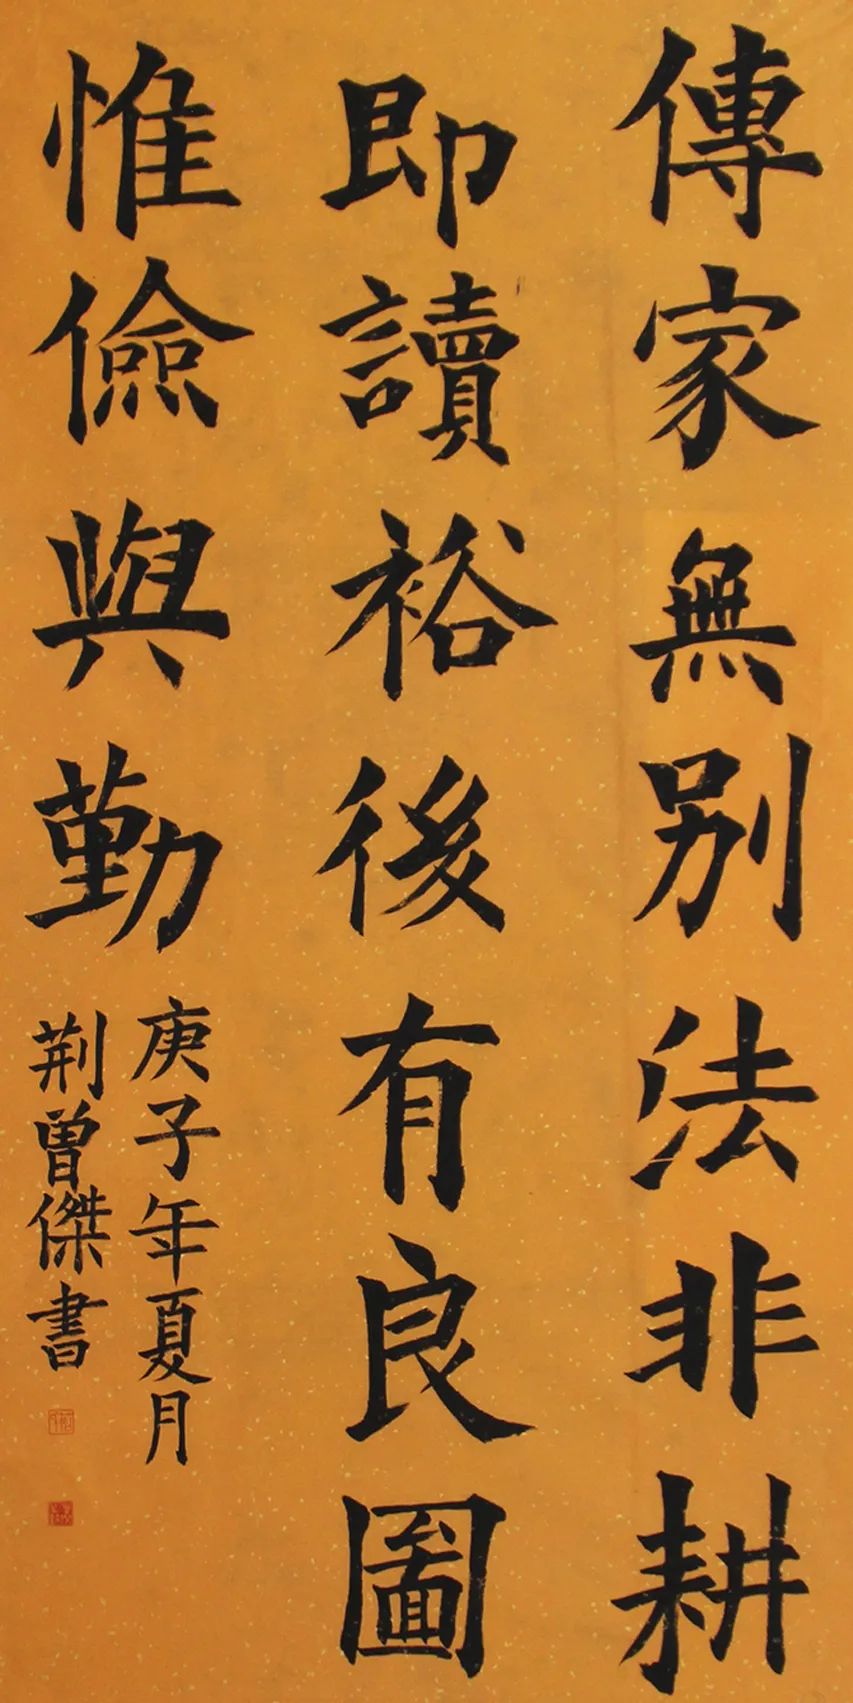 傳家無别法非耕
即讀裕後有良圖
惟儉與勤
庚子年夏月
荆曾傑書